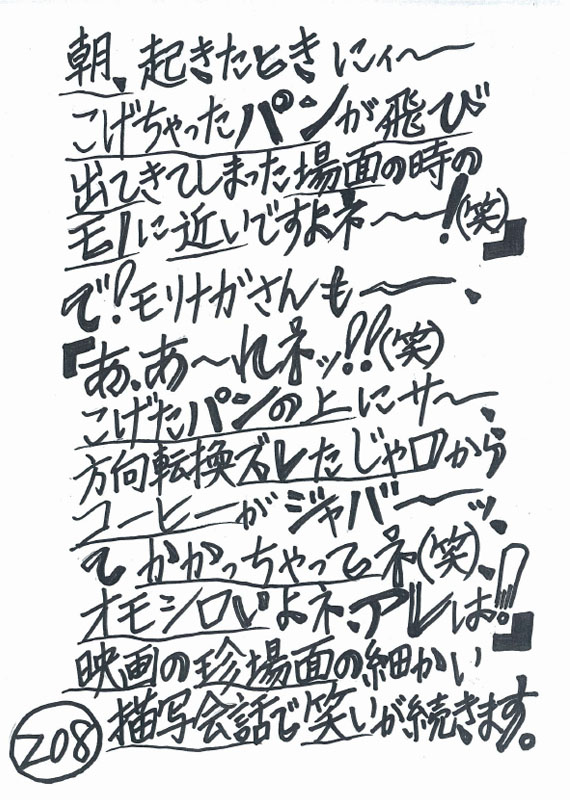 朝、起きたときにィ〜
こげちゃったパンが飛び
出てきてしまった場面の時の
モノに近いですよネ〜!(笑)』
で!モリナガさんも〜、
『あ、あ〜れネッ!!(笑)
こげたパンの上にサ〜、
方向転換ズレたじゃ口から
コーヒーがジャバ〜ッ、
てかかっちゃってネ(笑)、
オモシロいよネ、アレは!』
映画の珍場面の細かい
描写会話で笑いが続きます。
208